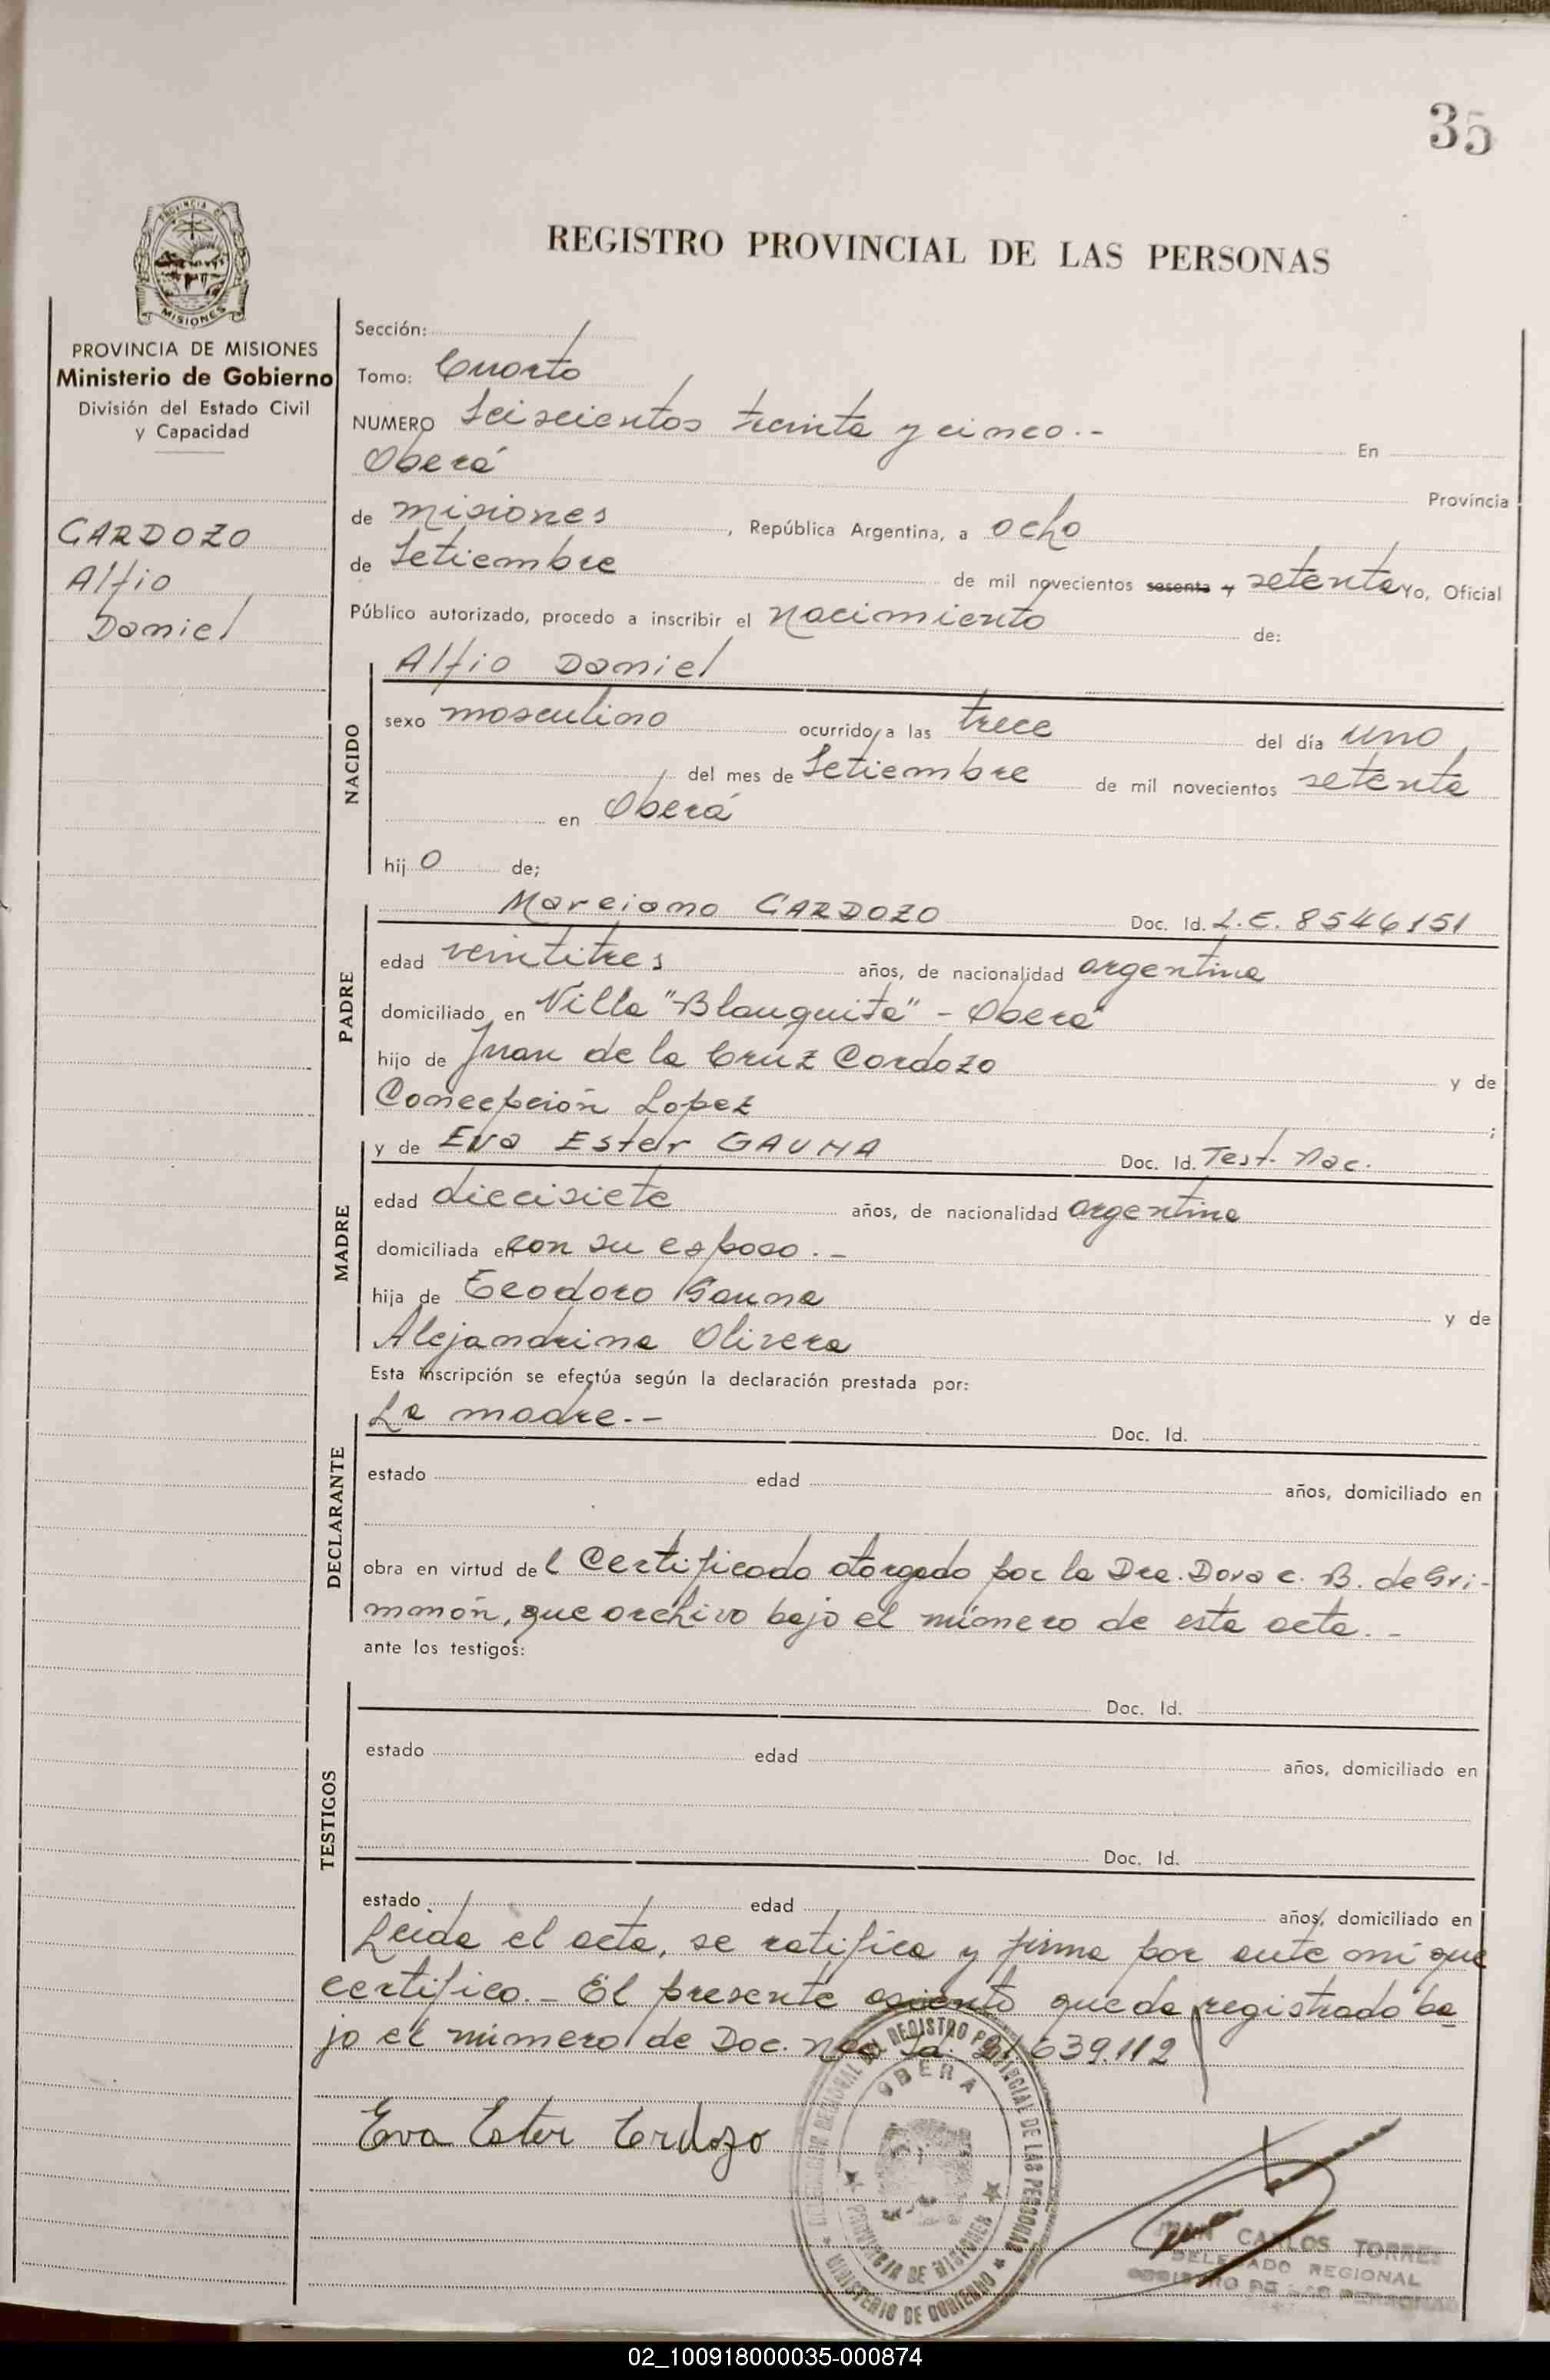 35
PROVINCIA DE
MISIONES
REGISTRO PROVINCIAL DE LAS PERSONAS
PROVINCIA DE MISIONES
Ministerio de Gobierno
División del Estado Civil
y Capacidad
CARDOZO
Alfio
Daniel
Sección:
Tomo: Cuarto
NUMERO Seiscientos treinta y cinco.- En
Oberá Provincia
de Misiones, República Argentina, a ocho
de Setiembre de mil novecientos sesenta y setenta Yo, Oficial
Público autorizado, procedo a inscribir el nacimiento de:
NACIDO
Alfio Daniel
sexo masculino ocurrido a las trece del día uno
del mes de Setiembre de mil novecientos setenta
en Oberá
hijo de;
PADRE
Marciano CARDOZO Doc. Id. L.E. 8546151
edad veintitres años, de nacionalidad argentina
domiciliado en Villa "Blanquita" - Oberá
hijo de Juan de la Cruz Cardozo y de
Concepción Lopez ;
MADRE
y de Eva Ester GAUNA Doc. Id. Test. Nac.
edad diecisiete años, de nacionalidad argentina
domiciliada en con su esposo.-
hija de Teodoro Gauna y de
Alejandrina Olivera
Esta inscripción se efectúa según la declaración prestada por:
DECLARANTE
La madre.-- Doc. Id.
estado edad años, domiciliado en
obra en virtud del Certificado otorgado por la Dra. Dora C. B. de Gri-
mmón, que archivo bajo el número de esta acta.-
ante los testigos:
TESTIGOS
Doc. Id.
estado edad años, domiciliado en
Doc. Id.
estado edad años, domiciliado en
Leida el acta, se ratifica y firma por ante mí que
certifico.- El presente asiento queda registrado ba
jo el número de Doc. Nac. Id. 21.639.112
Eva Ester Cardozo
REGISTRO PROVINCIAL DE LAS PERSONAS
OBERA
PROVINCIA DE MISIONES
MINISTERIO DE GOBIERNO
JUAN CARLOS TORRES
DELEGADO REGIONAL
REGISTRO DE LAS PERSONAS
02_100918000035-000874